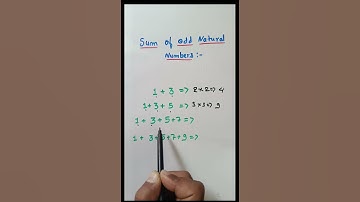 Sum of odd Natural
Numbers:-
1 + 3 => 2×2=> 4
1+3+5 => 3×3=> 9
1 + 3+5+7=>
1 + 3+5+7+9=>